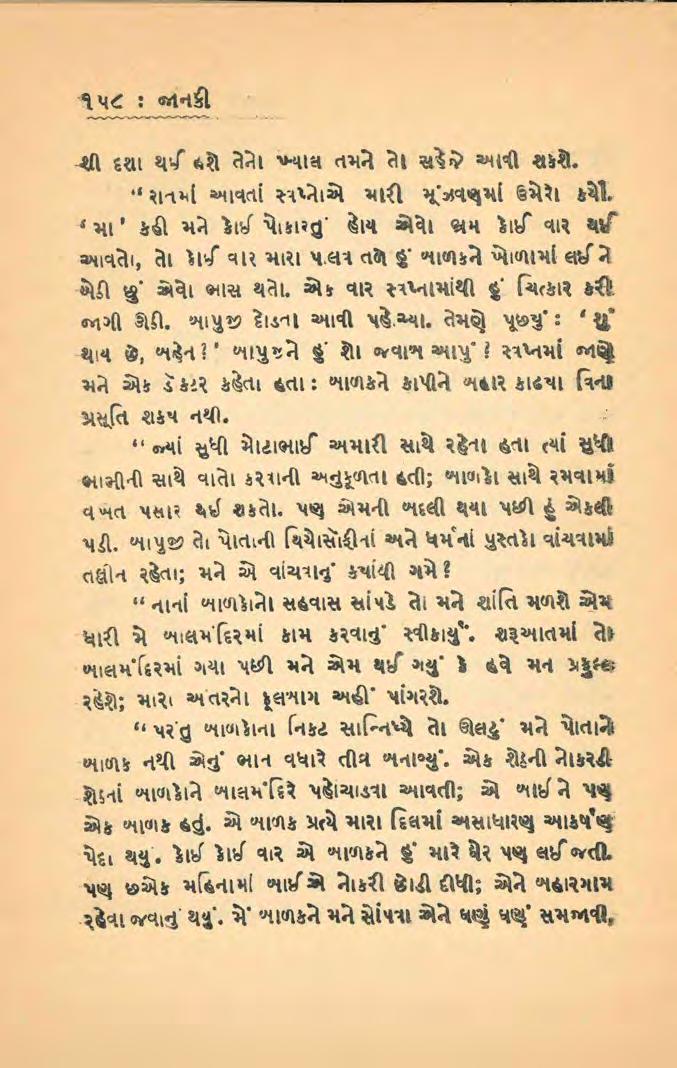 ૧૫૮ : જાનકી
શી દશા થઈ હશે તેનો ખ્યાલ તમને તો સહેજે આવી શકશે.
“રાતમાં આવતાં સ્વપ્નોએ મારી મૂંઝવણમાં ઉમેરો કર્યો.
‘મા’ કહી મને કોઈ પોકારતું હોય એવો ભ્રમ કોઈ વાર થઈ
આવતો, તો કોઈ વાર મારા પલવ તળે હું બાળકને ખોળામાં લઈ ને
બેઠી છું એવો ભાસ થતો. એક વાર સ્વપ્નામાંથી હું ચિત્કાર કરી
જાગી ઊઠી. બાપુજી દોડતા આવી પહોંચ્યા. તેમણે પૂછ્યું: ‘શું
થાય છે, બહેન?’ બાપુજીને હું શો જવાબ આપું? સ્વપ્નમાં જાણે
મને એક ડૉક્ટર કહેતા હતા: બાળકને કાપીને બહાર કાઢયા વિના
પ્રસૂતિ શકય નથી.
“જ્યાં સુધી મોટાભાઈ અમારી સાથે રહેતા હતા ત્યાં સુધી
ભાભીની સાથે વાતો કરવાની અનુકૂળતા હતી; બાળકો સાથે રમવામાં
વખત પસાર થઈ શકતો. પણ એમની બદલી થયા પછી હું એકલી
પડી. બાપુજી તો પોતાની થિયોસૉફીનાં અને ધર્મનાં પુસ્તકો વાંચવામાં
તલ્લીન રહેતા; મને એ વાંચવાનું કયાંથી ગમે?
“નાનાં બાળકોનો સહવાસ સાંપડે તો મને શાંતિ મળશે એમ
ધારી મે બાલમંદિરમાં કામ કરવાનું સ્વીકાર્યું. શરૂઆતમાં તો
બાલમંદિરમાં ગયા પછી મને એમ થઈ ગયું કે હવે મન પ્રફુલ્લ
રહેશે; મારા અંતરનો ફૂલબાગ અહીં પાંગરશે.
“પરંતુ બાળકોના નિકટ સાન્નિધ્યે તો ઊલટું મને પોતાને
બાળક નથી એનું ભાન વધારે તીવ્ર બનાવ્યું. એક શેઠની નોકરડી
શેઠનાં બાળકોને બાલમંદિરે પહોંચાડવા આવતી; એ બાઈ ને પણ
એક બાળક હતું. એ બાળક પ્રત્યે મારા દિલમાં અસાધારણ આકર્ષણ
પેદા થયુ. કોઈ કોઈ વાર એ બાળકને હું મારે ઘેર પણ લઈ જતી.
પણ છએક મહિનામાં બાઈ એ નોકરી છોડી દીધી; એને બહારગામ
રહેવા જવાનું થયું. મેં બાળકને મને સોંપવા એને ઘણું ઘણું સમજાવી,